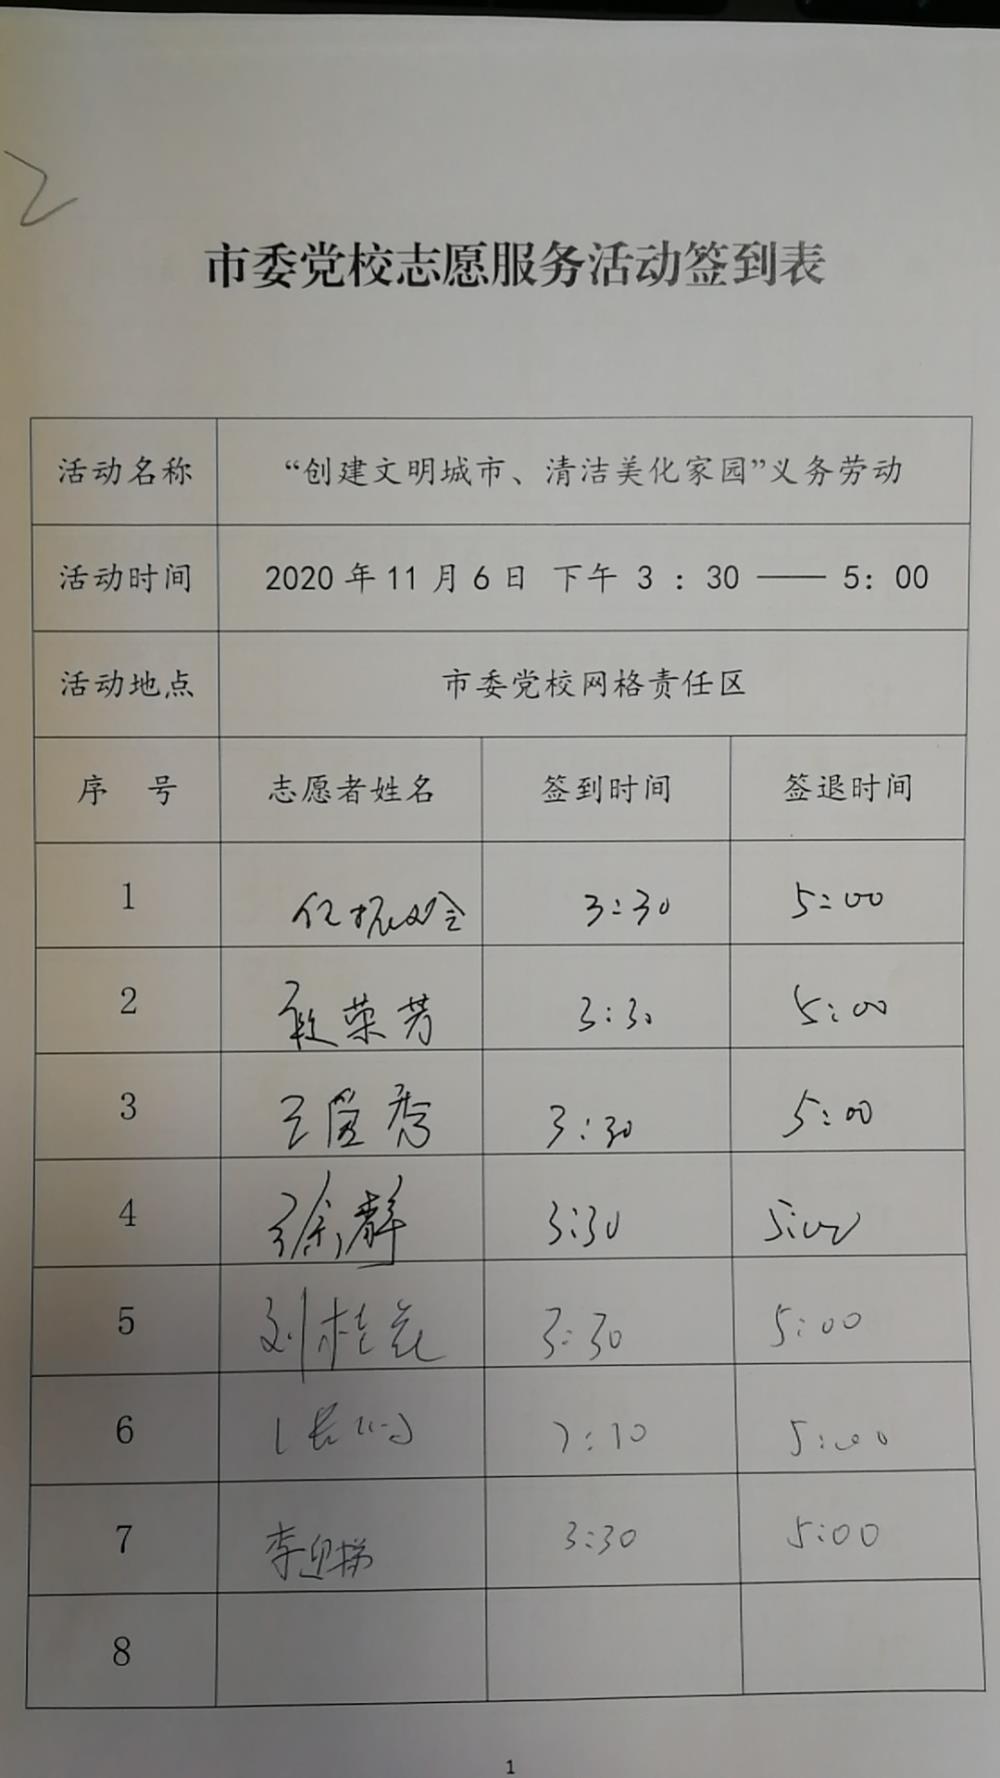 市委党校志愿服务活动签到表
活动名称 “创建文明城市、清洁美化家园”义务劳动
活动时间 2020 年 11 月 6 日 下午 3 : 30 —— 5: 00
活动地点 市委党校网格责任区
序 号 志愿者姓名 签到时间 签退时间
1 3:30 5:00
2 荣芳 3:30 5:00
3 王爱秀 3:30 5:00
4 徐静 3:30 5:00
5 刘桂花 3:30 5:00
6 5:00
7 李迎娣 3:30 5:00
8
1